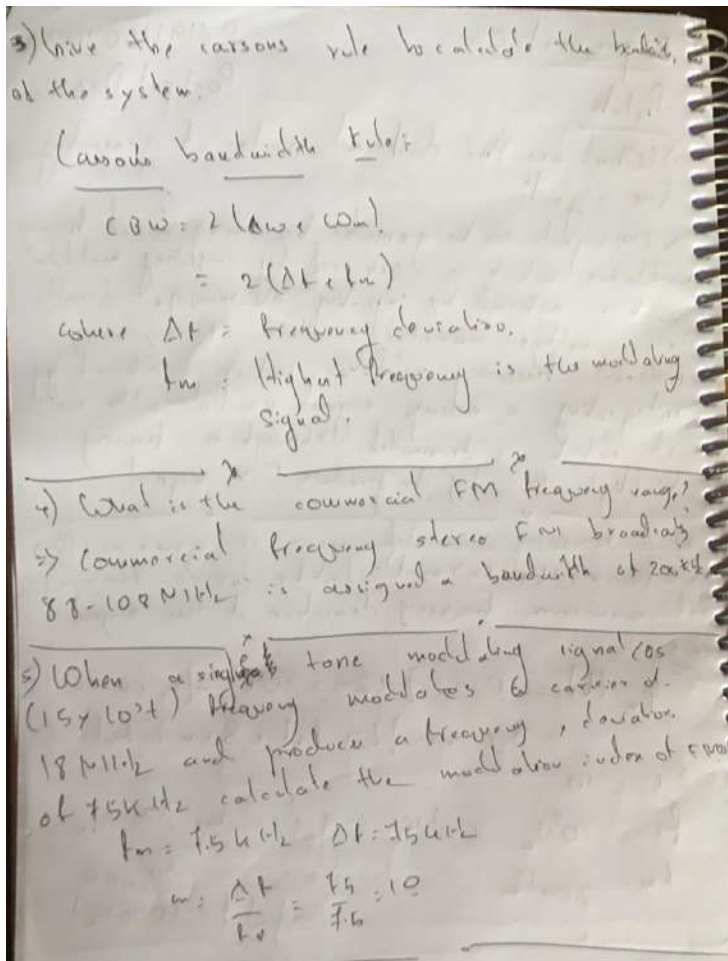 3) Give the carsons rule to calculate the bandwidth
of the system.
Carson's bandwidth rule:
CBW = 2 (Δω + ωm).
= 2 (Δf + fm)
where Δf = frequency deviation.
fm = Highest frequency is the modulating
signal.
4) What is the commercial FM frequency range?
=> Commercial frequency stereo FM broadcast
88-108 MHz is assigned a bandwidth of 200 KHz
5) When a single tone modulating signal cos
(15 × 10³t) frequency modulates a carrier of
18 MHz and produces a frequency, deviation
of 75 KHz calculate the modulation index of FM
fm = 7.5 KHz Δf = 75 KHz
m = Δf / f = 75 / 7.5 = 10